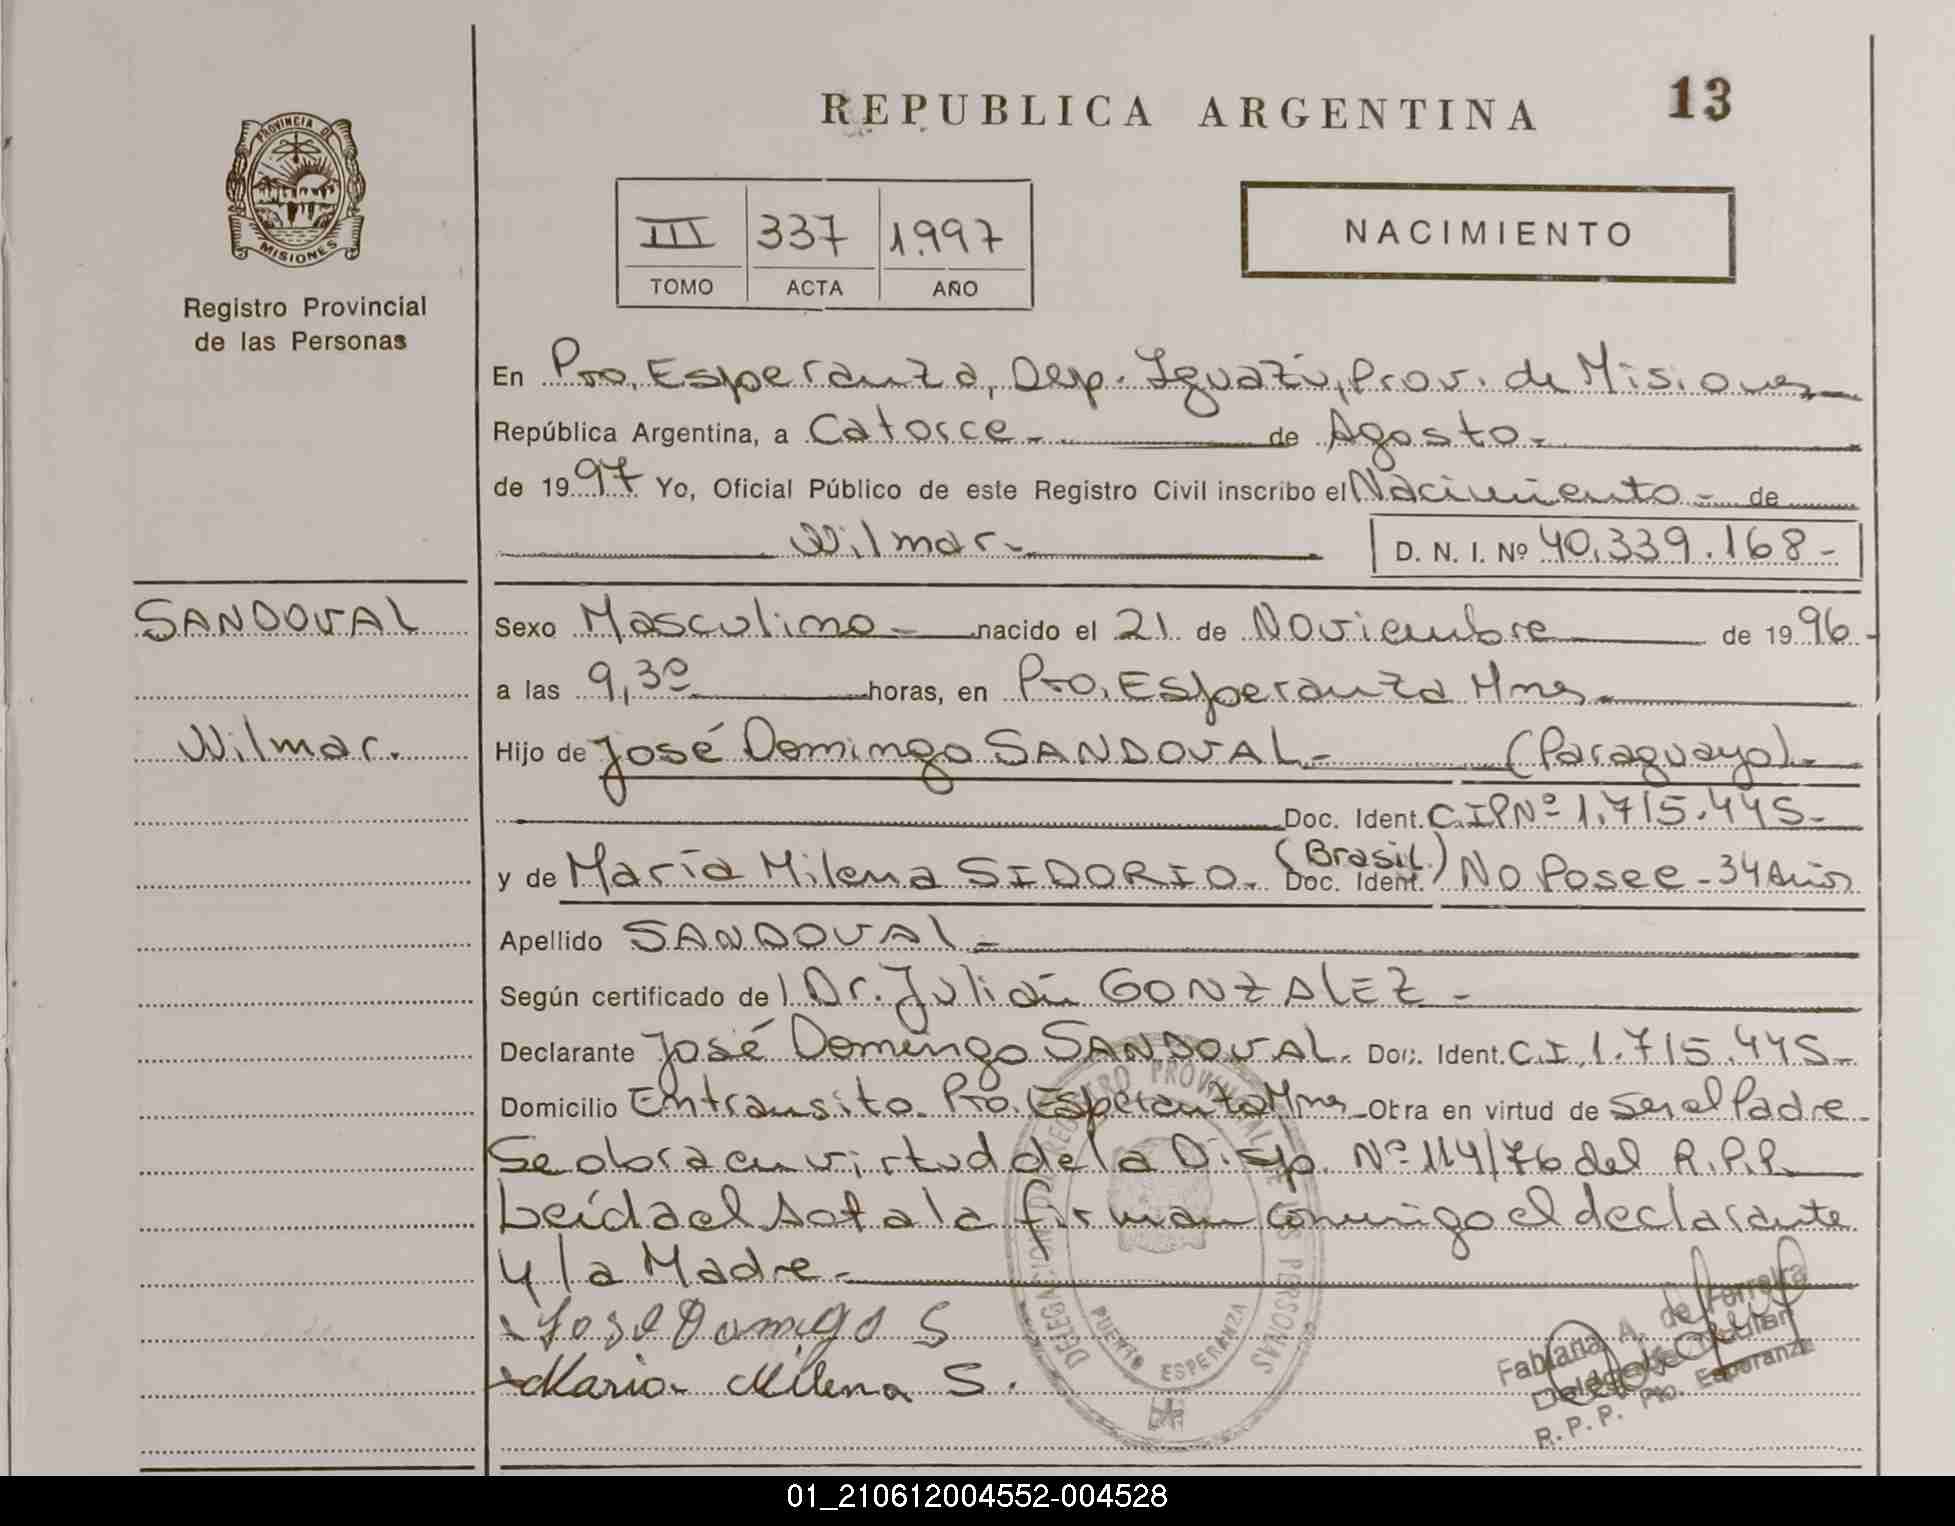 REPUBLICA ARGENTINA
13
PROVINCIA DE
MISIONES
Registro Provincial
de las Personas
III 337 1.997
TOMO ACTA AÑO
NACIMIENTO
En Pto. Esperanza, Dep. Iguazú, Prov. de Misiones
República Argentina, a Catorce - de Agosto -
de 1997 Yo, Oficial Público de este Registro Civil inscribo el Nacimiento - de
Wilmar - D. N. I. Nº 40.339.168 -
SANDOVAL
Sexo Masculino - nacido el 21 de Noviembre de 1996 -
a las 9,30 horas, en Pto. Esperanza Mnes -
Wilmar.
Hijo de José Domingo SANDOVAL - (Paraguayo) -
Doc. Ident. C.I.P Nº 1.715.445 -
y de María Milena SIDORIO - (Brasil.) Doc. Ident. No Posee - 34 Años
Apellido SANDOVAL -
Según certificado del Dr. Julián GONZALEZ -
Declarante José Domingo SANDOVAL. Doc. Ident. C.I. 1.715.445 -
Domicilio En transito. Pto. Esperanza Mnes - Obra en virtud de ser el Padre -
Se obra en virtud de la Disp. Nº 114/76 del R.P.P.
Leída el Acta la firman conmigo el declarante
y la Madre -
Jose Domigo S
Maria Milena S.
DELEGACION REGISTRO PROVINCIAL DE LAS PERSONAS
PUERTO ESPERANZA
Fabiana A. de Ferreira
Delegada Titular
R.P.P. Pto. Esperanza
01_210612004552-004528